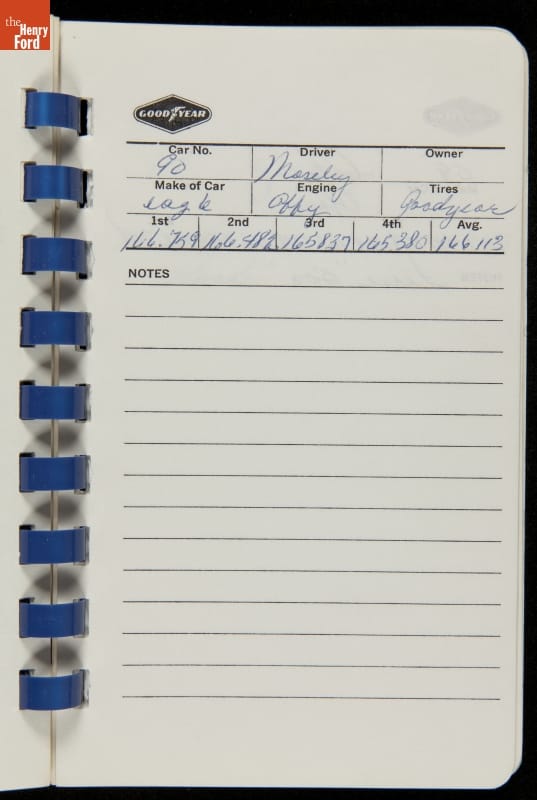 the
Henry
Ford
GOODYEAR
Car No. Driver Owner
90 Moseley
Make of Car Engine Tires
eagle Offy Goodyear
1st 2nd 3rd 4th Avg.
166.759 166.482 165837 165380 166113
NOTES